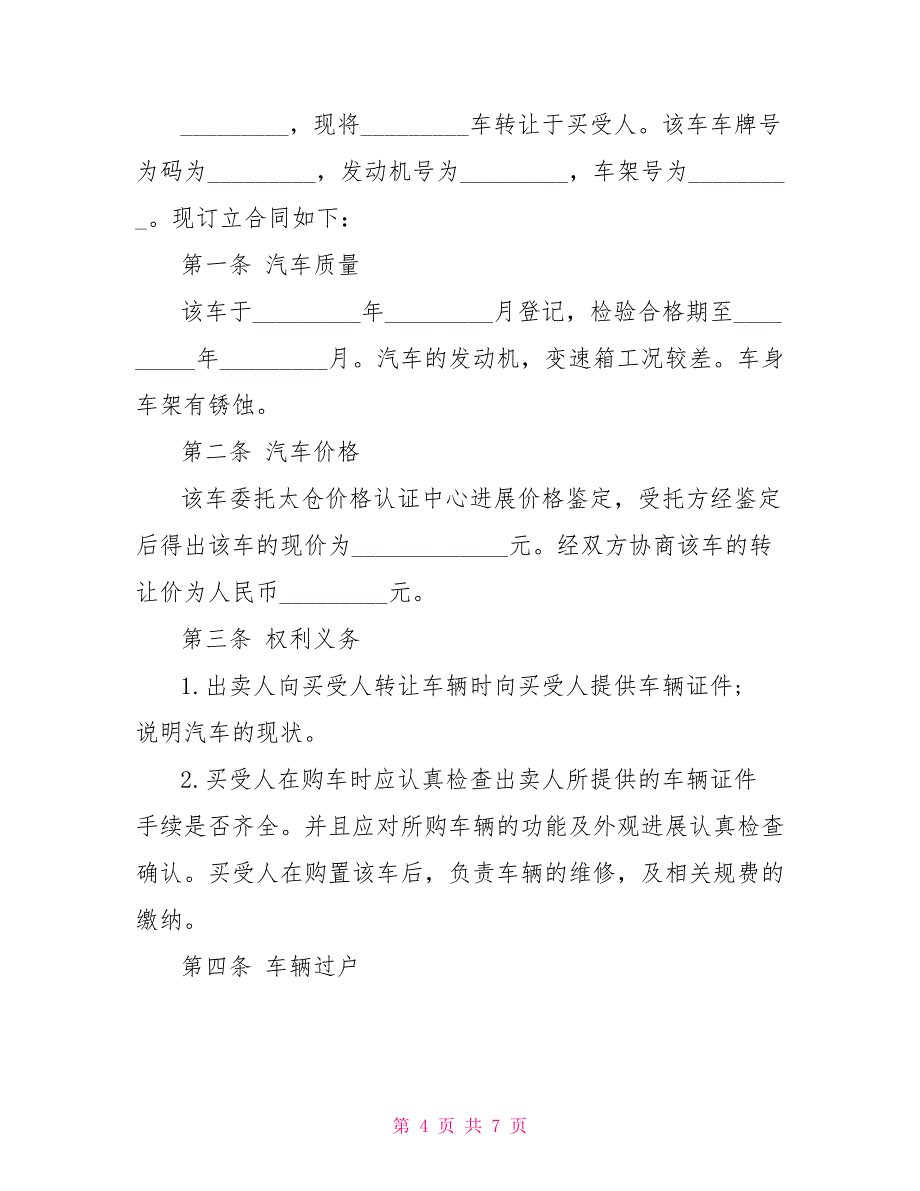 _________，现将_________车转让于买受人。该车车牌号
为码为_________，发动机号为_________，车架号为________
_。现订立合同如下：
第一条 汽车质量
该车于_________年_________月登记，检验合格期至____
_____年_________月。汽车的发动机，变速箱工况较差。车身
车架有锈蚀。
第二条 汽车价格
该车委托太仓价格认证中心进展价格鉴定，受托方经鉴定
后得出该车的现价为_____________元。经双方协商该车的转
让价为人民币_________元。
第三条 权利义务
1.出卖人向买受人转让车辆时向买受人提供车辆证件;
说明汽车的现状。
2.买受人在购车时应认真检查出卖人所提供的车辆证件
手续是否齐全。并且应对所购车辆的功能及外观进展认真检查
确认。买受人在购置该车后，负责车辆的维修，及相关规费的
缴纳。
第四条 车辆过户
第 4 页 共 7 页